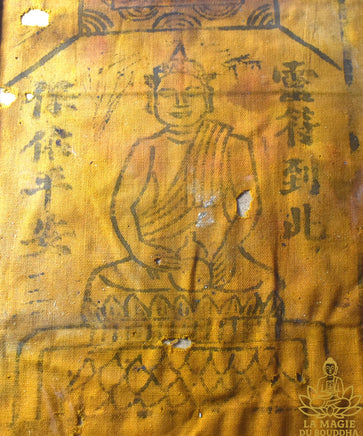 霊符到此
保佑平安
LA MAGIE
DU BOUDDHA